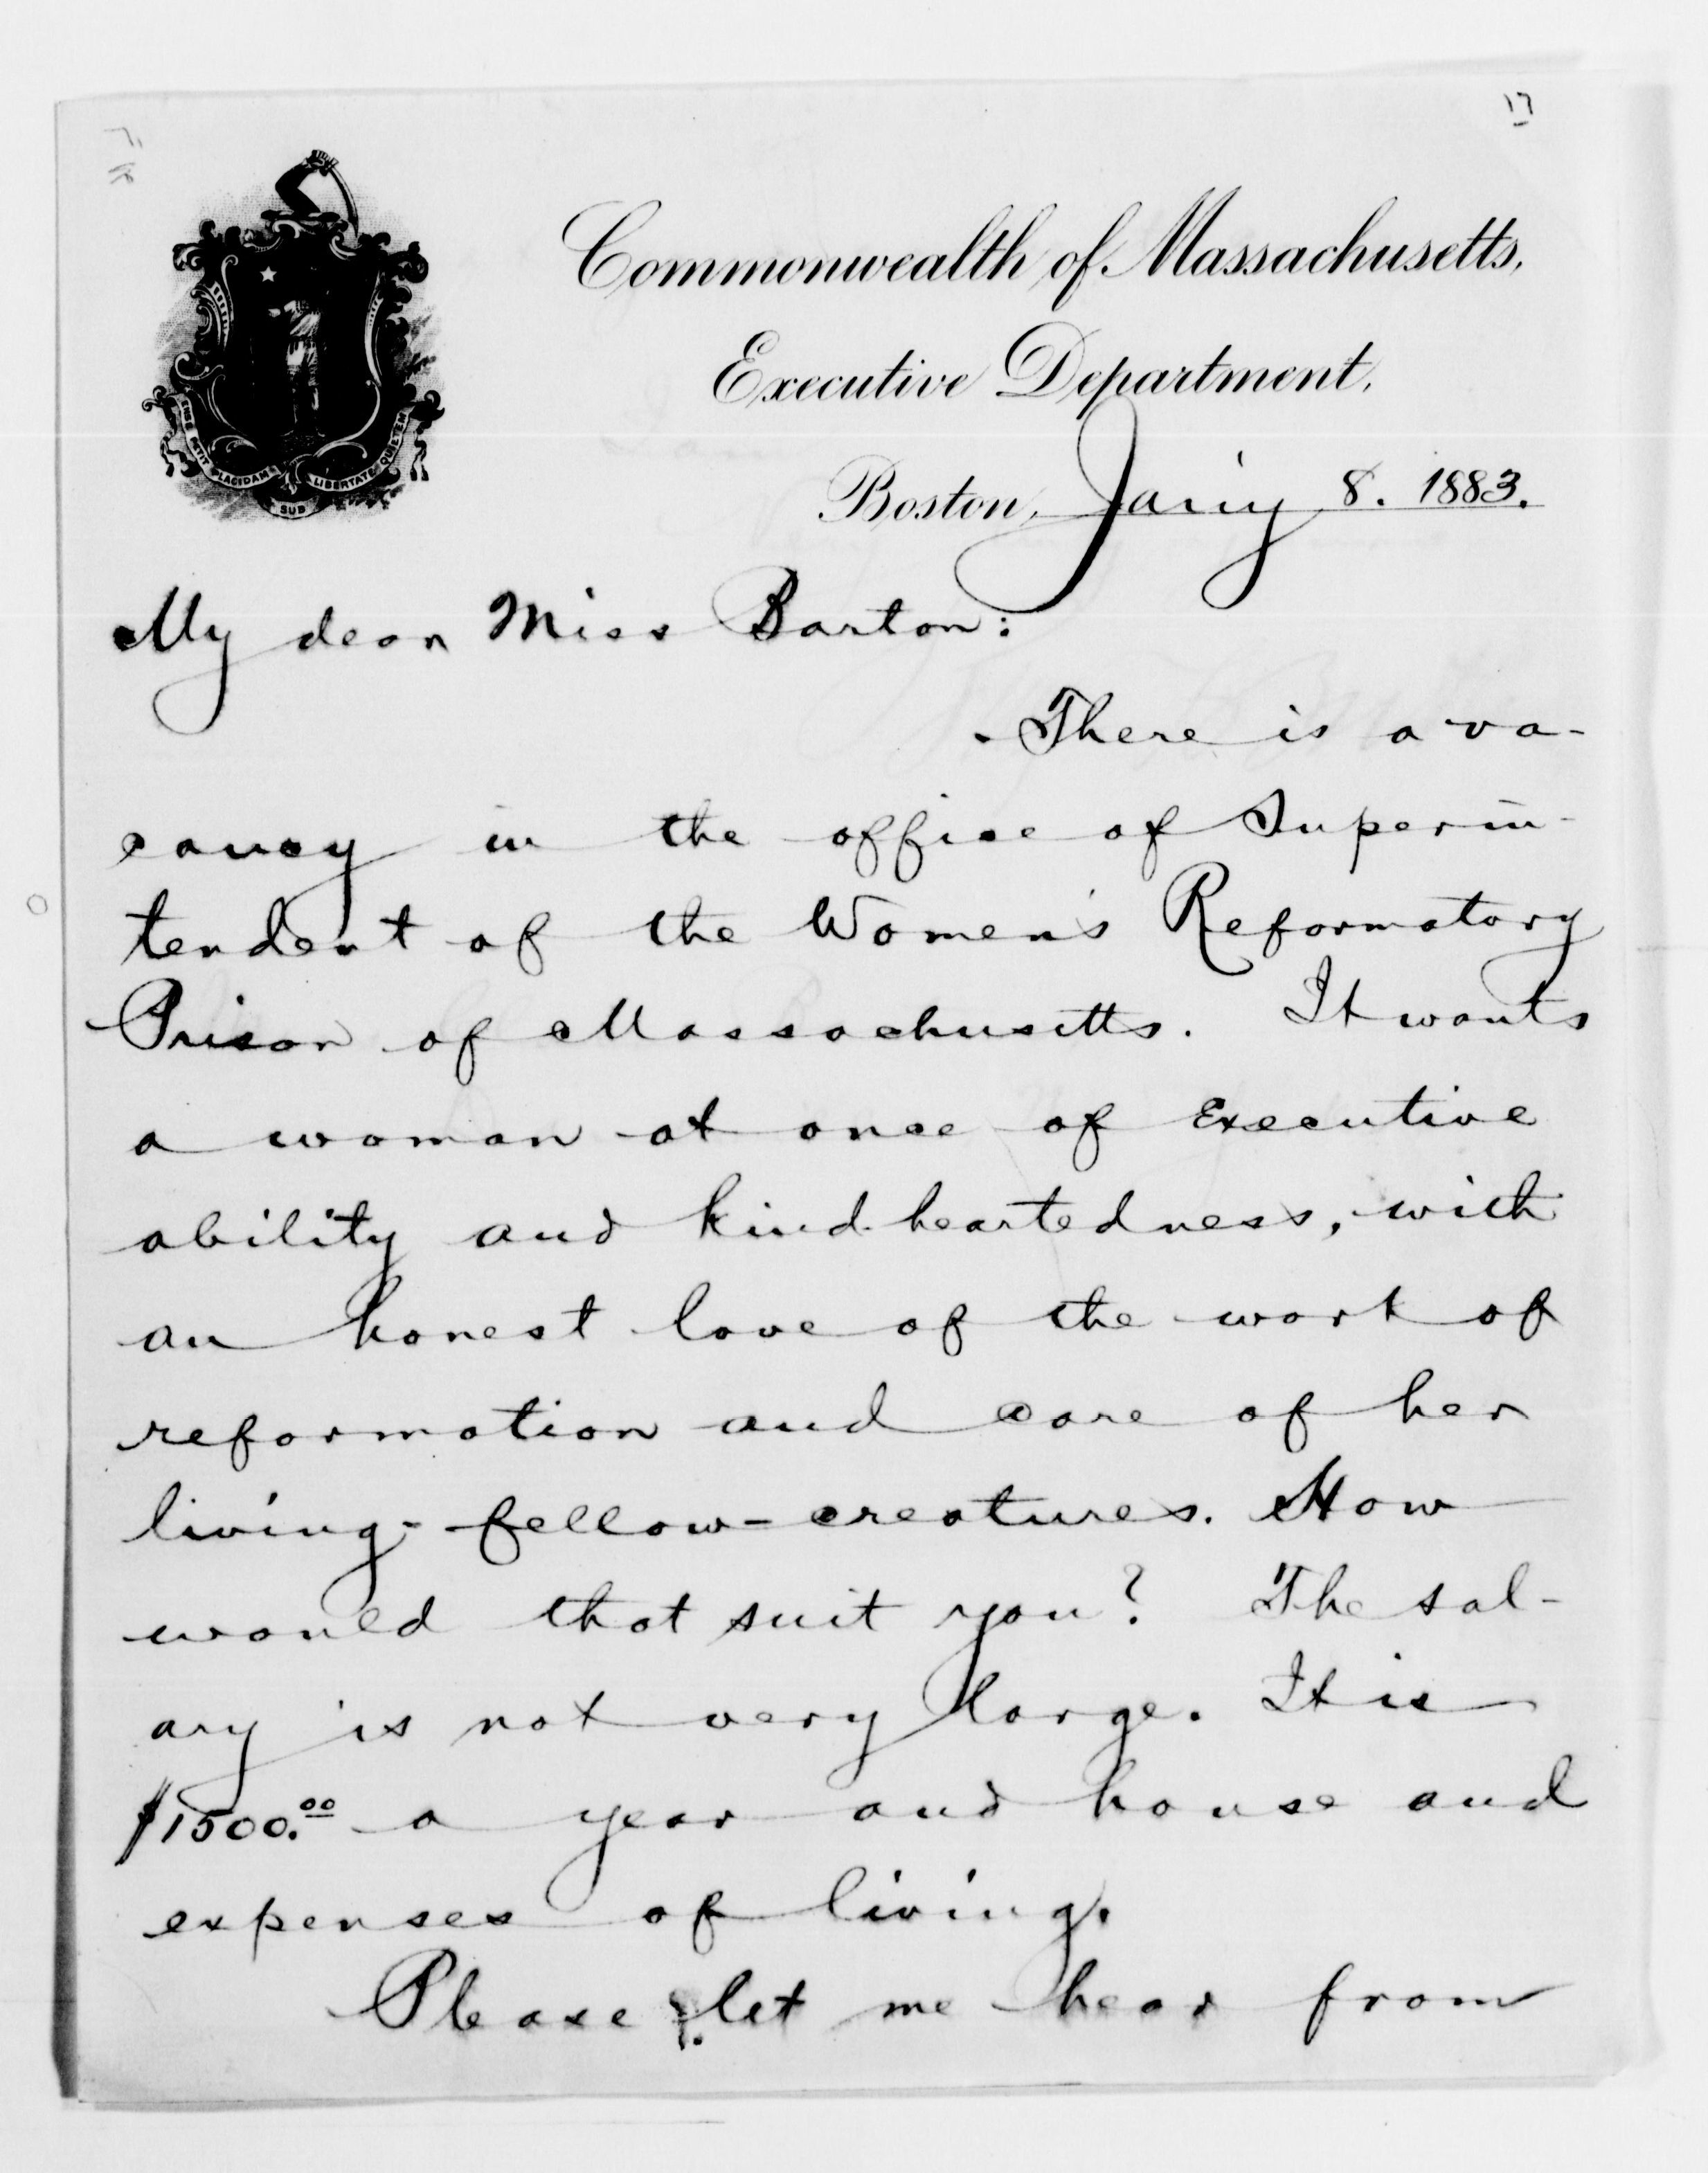 17
Commonwealth of Massachusetts,
Executive Department,
Boston, Jany 8. 1883.
ENSE PETIT PLACIDAM SUB LIBERTATE QUIETEM
My dear Miss Barton:
There is a va-
cancy in the office of Superin-
tendent of the Women's Reformatory
Prison of Massachusetts. It wants
a woman at once of Executive
ability and kind-heartedness, with
an honest love of the work of
reformation and care of her
living fellow-creatures. How
would that suit you? The sal-
ary is not very large. It is
$1500.00 a year and house and
expenses of living.
Please let me hear from